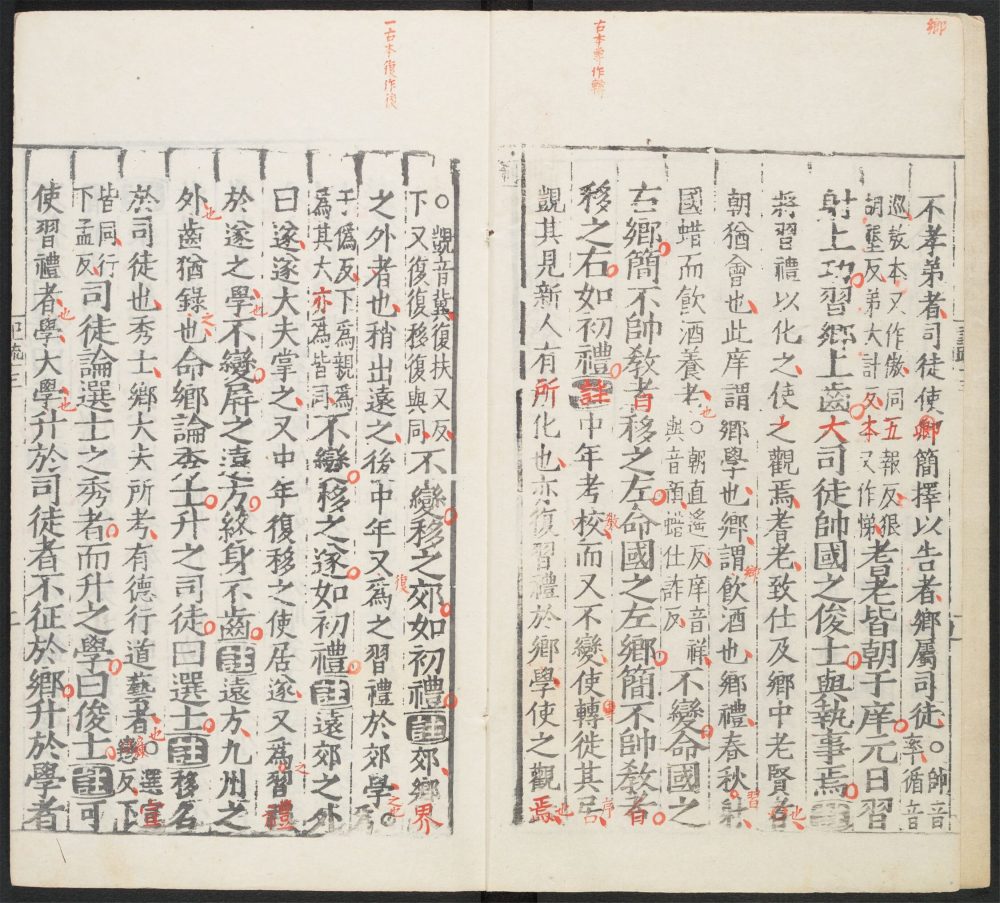 鄉
古本率作轉
一古本復作後
不孝弟者司徒使鄉簡擇以告者鄉屬司徒○帥音率循音
巡敖本又作傲同五報反狠胡墾反弟大計反本又作悌耆老皆朝于庠元日習
射上功習鄉上齒大司徒帥國之俊士與執事焉註
將習禮以化之使之觀焉耆老致仕及鄉中老賢者也
朝猶會也此庠謂鄉學也鄉謂飲酒也鄉禮春秋射
國蜡而飲酒養老也○朝直遙反庠音祥與音預蜡仕詐反不變命國之
右鄉簡不帥教者移之左命國之左鄉簡不帥教者
移之右如初禮註中年考校而又不變使轉徙其居
覬其見新人有所化也亦復習禮於鄉學使之觀焉也
○覬音冀復扶又反下又復復移復與同不變移之郊如初禮註郊鄉界
之外者也稍出遠之後中年又為之習禮於郊學之也○為
于偽反下為親為為其大亦為皆同不變移之遂如初禮註遠郊之外
曰遂遂大夫掌之又中年復移之使居遂又為之習禮
於遂之學也不變屏之遠方終身不齒註遠方九州之
外也齒猶錄之也命鄉論秀士升之司徒曰選士註移名
於司徒也秀士鄉大夫所考有德行道藝者也○選宣戀反下
皆同行下孟反司徒論選士之秀者而升之學曰俊士註可
使習禮者學也大學也升於司徒者不征於鄉升於學者